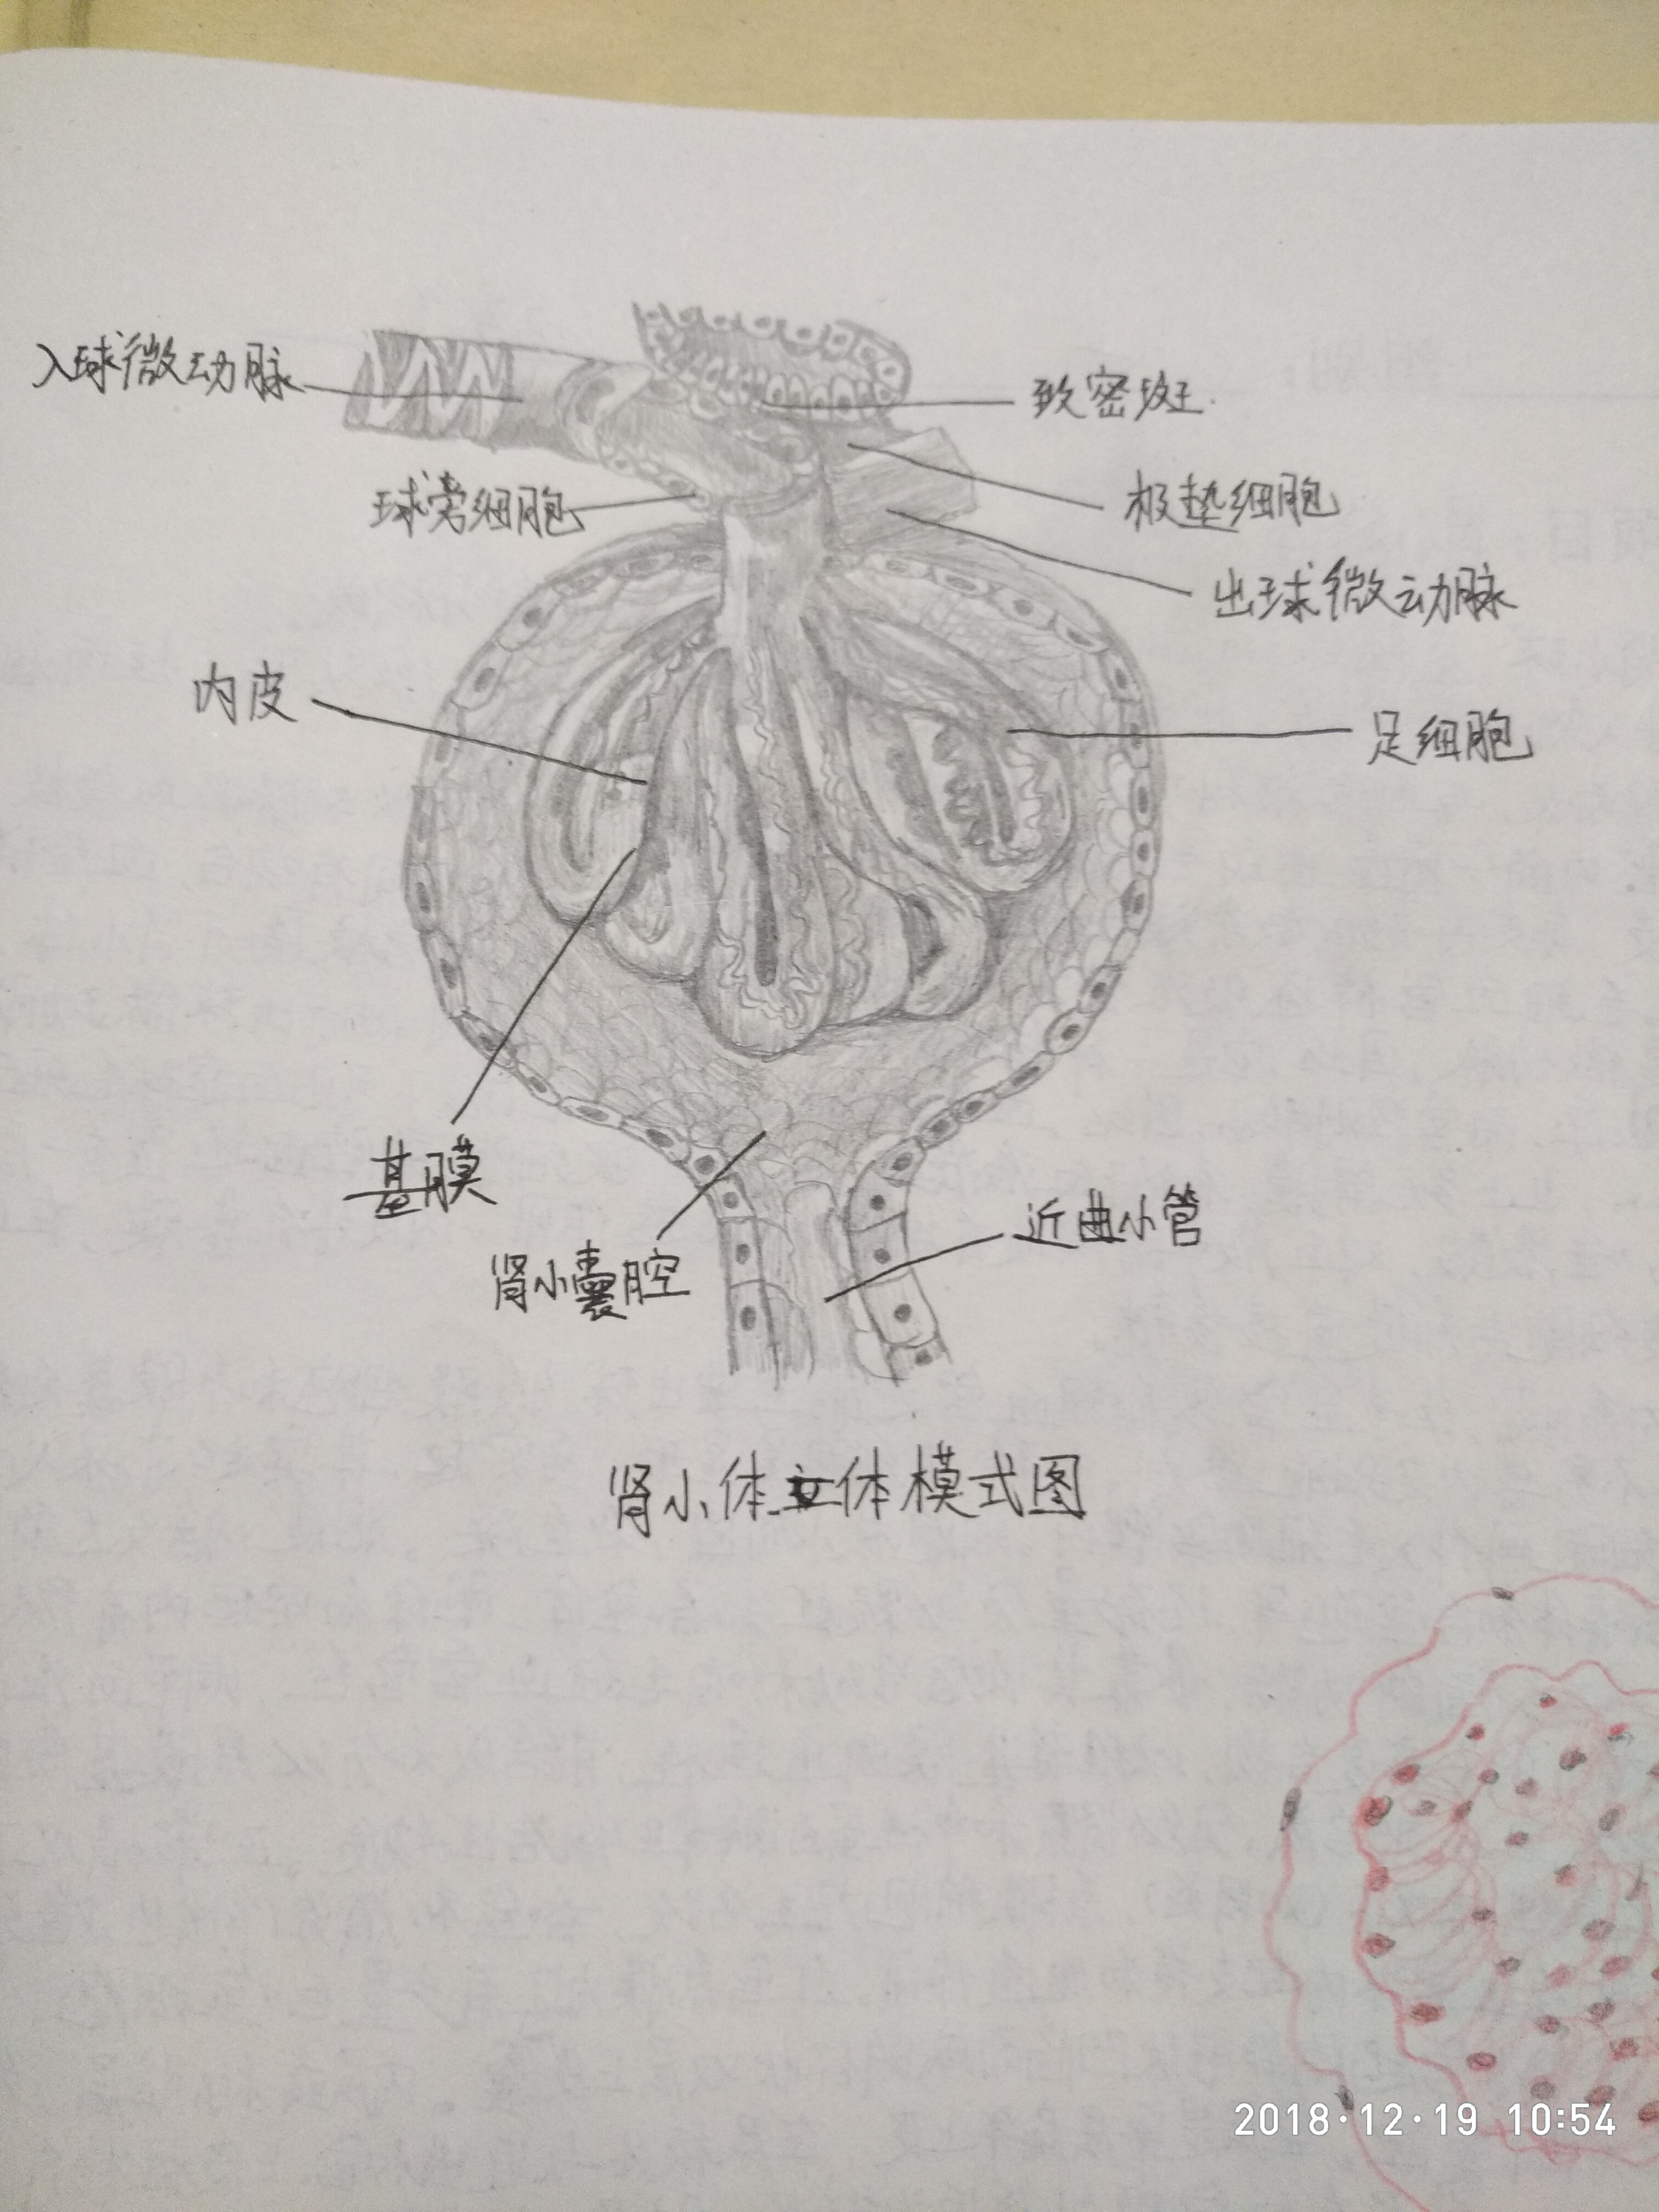 入球微动脉
致密斑
球旁细胞
极垫细胞
出球微动脉
内皮
足细胞
基膜
肾小囊腔
近曲小管
肾小体立体模式图
2018·12·19 10:54